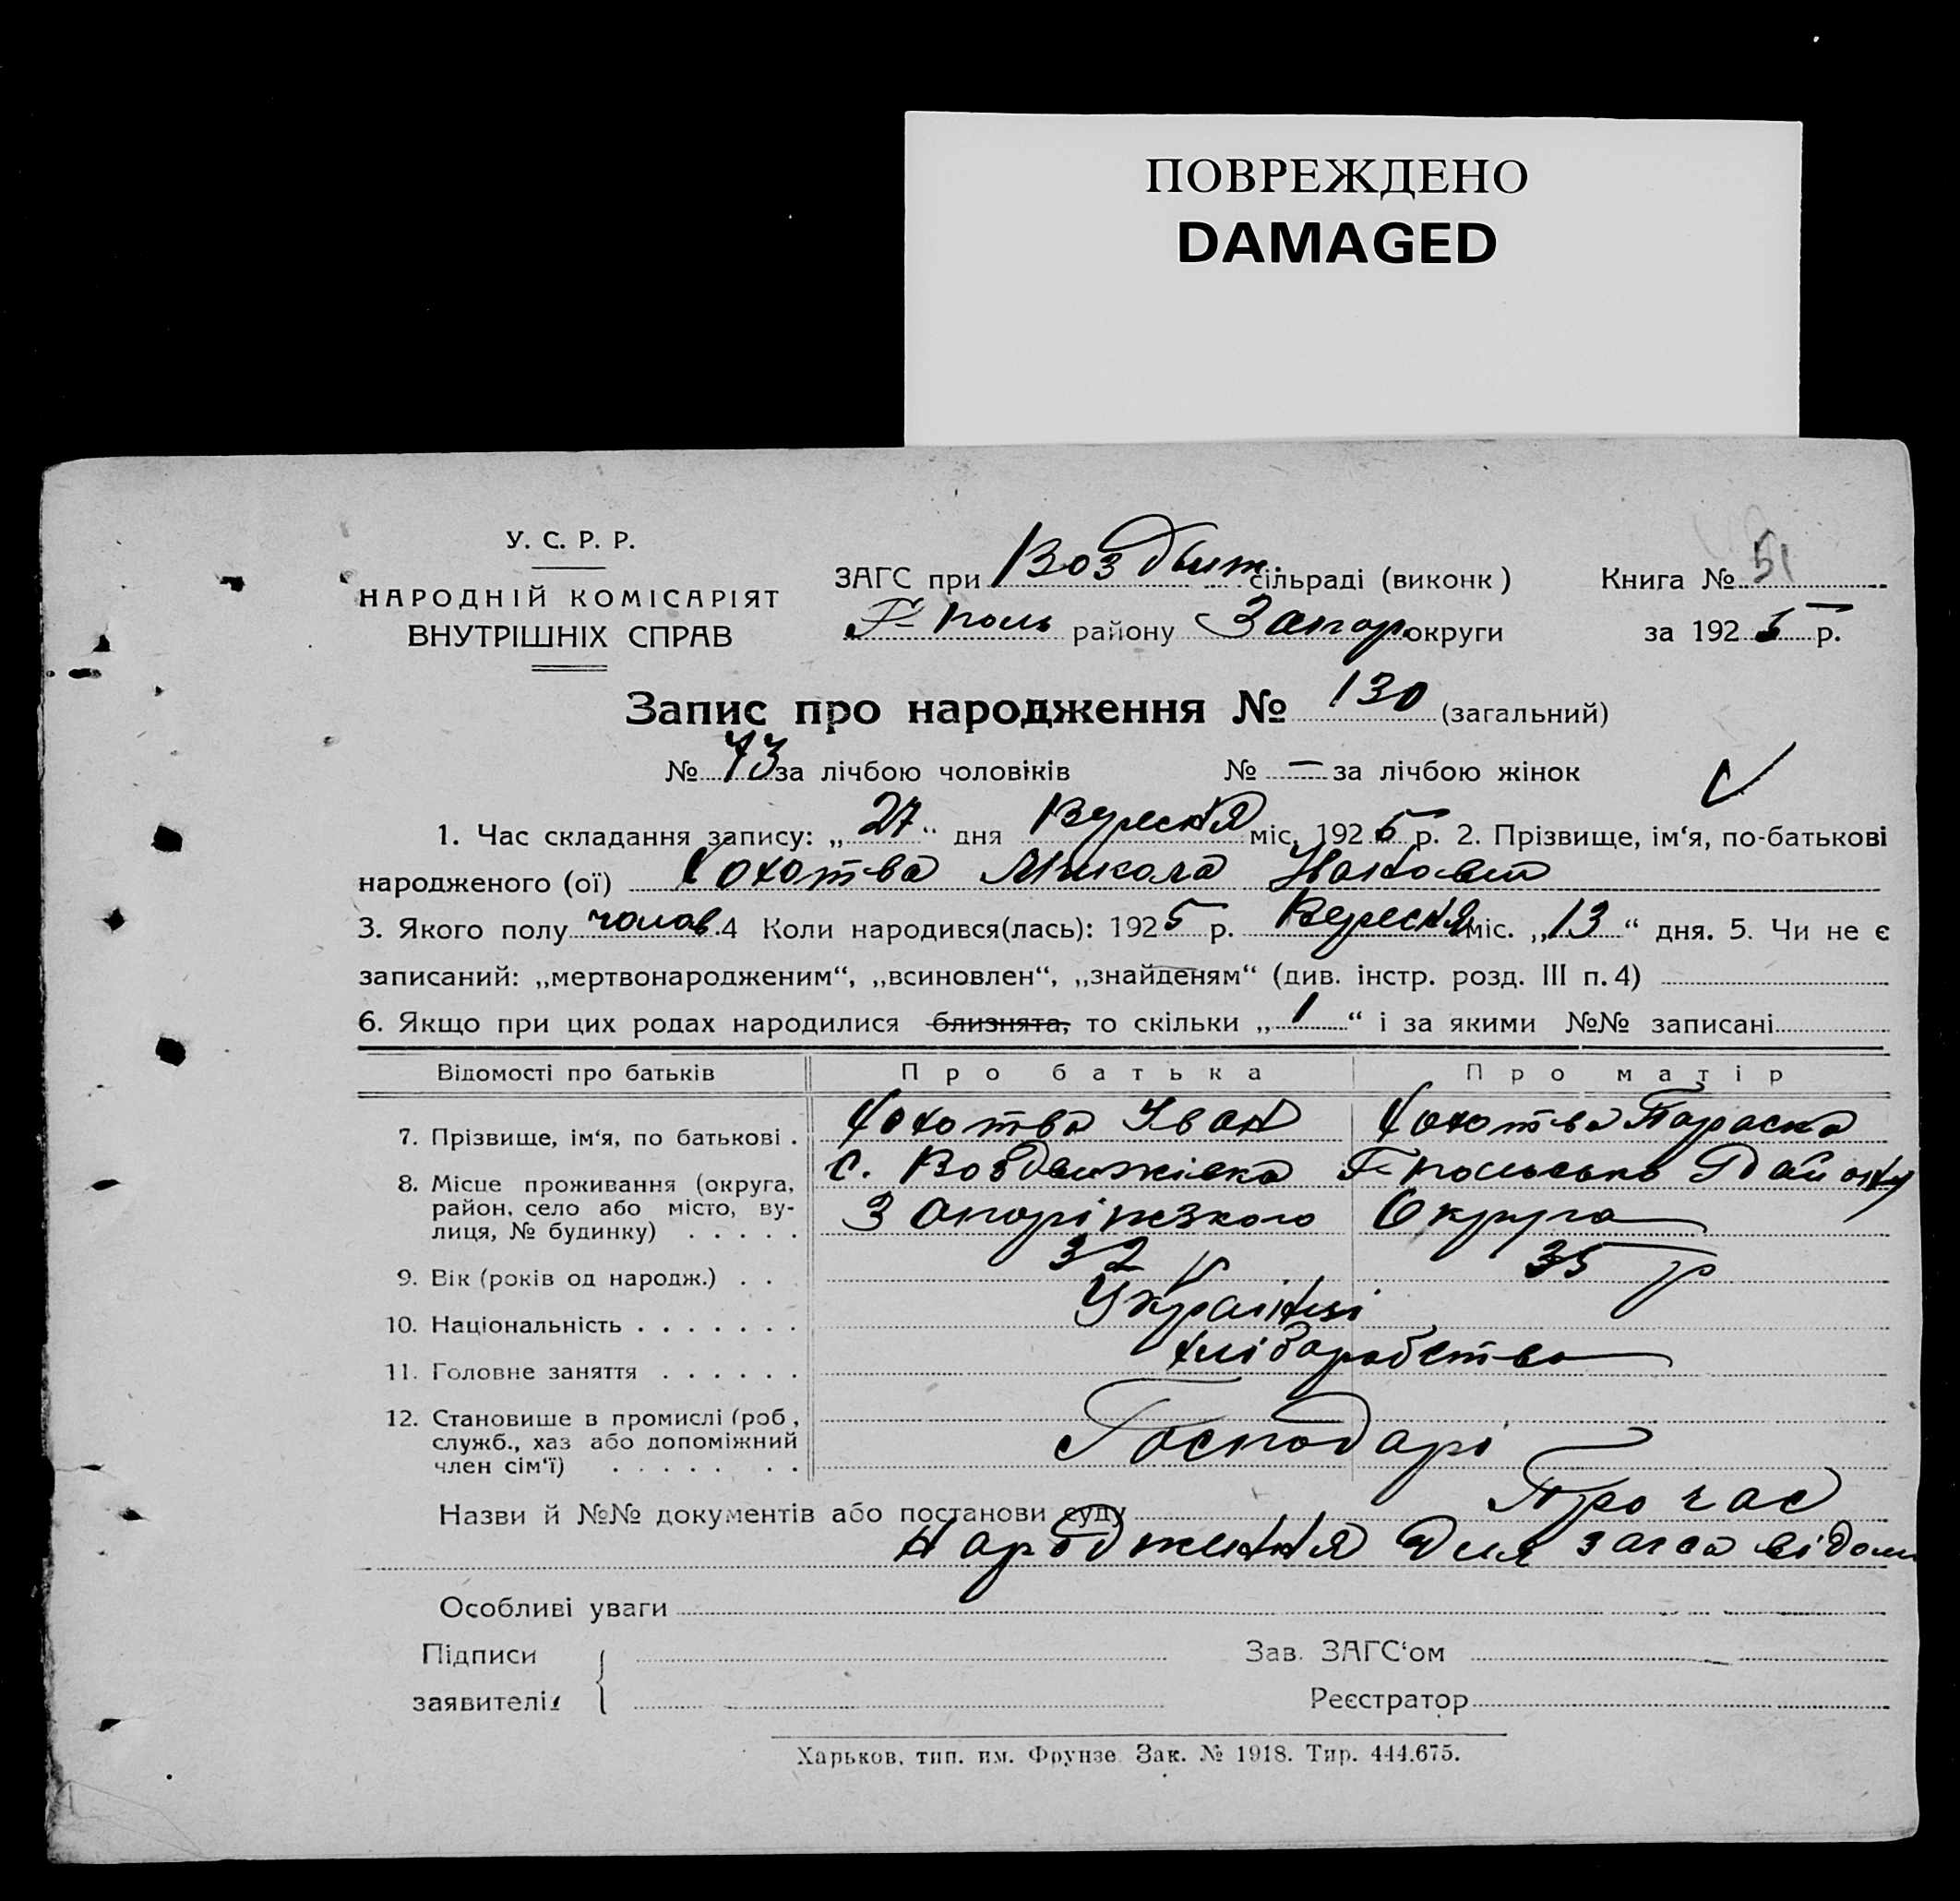 ПОВРЕЖДЕНО
DAMAGED
У. С. Р. Р.
НАРОДНІЙ КОМІСАРІЯТ
ВНУТРІШНІХ СПРАВ
ЗАГС при Воздвиж. сільраді (виконк)
Г-Поль району Запор. округи
Книга № 51
за 1925 р.
Запис про народження № 130 (загальний)
№ 73 за лічбою чоловіків № — за лічбою жінок
1. Час складання запису: „27“ дня Вересня міс. 1925 р. 2. Прізвище, ім‘я, по-батькові
народженого (ої) Хохотва Микола Іванович
3. Якого полу чолов. 4 Коли народився(лась): 1925 р. Вересня міс. „13“ дня. 5. Чи не є
записаний: „мертвонародженим“, „всиновлен“, „знайденям“ (див. інстр. розд. III п. 4)
6. Якщо при цих родах народилися близнята, то скільки „1“ і за якими №№ записані
Відомості про батьків Про батька Про матір
7. Прізвище, ім‘я, по батькові . Хохотва Іван Хохотва Параска
8. Місце проживання (округа, с. Воздвижівка Г-Польсько Району
район, село або місто, ву- Запоріжзкого Округа
лиця, № будинку) . . . . .
9. Вік (років од народж.) . . 32 р 35 р
10. Національність . . . . . . . Українці
11. Головне заняття . . . . . . хліборобство
12. Становише в промислі (роб.,
служб., хаз або допоміжний Господарі
член сім‘ї) . . . . . . .
Назви й №№ документів або постанови суду Про час
народження для загса відом
Особливі уваги
Підписи Зав. ЗАГС‘ом
заявителів Реєстратор
Харьков, тип. им. Фрунзе. Зак. № 1918. Тир. 444.675.